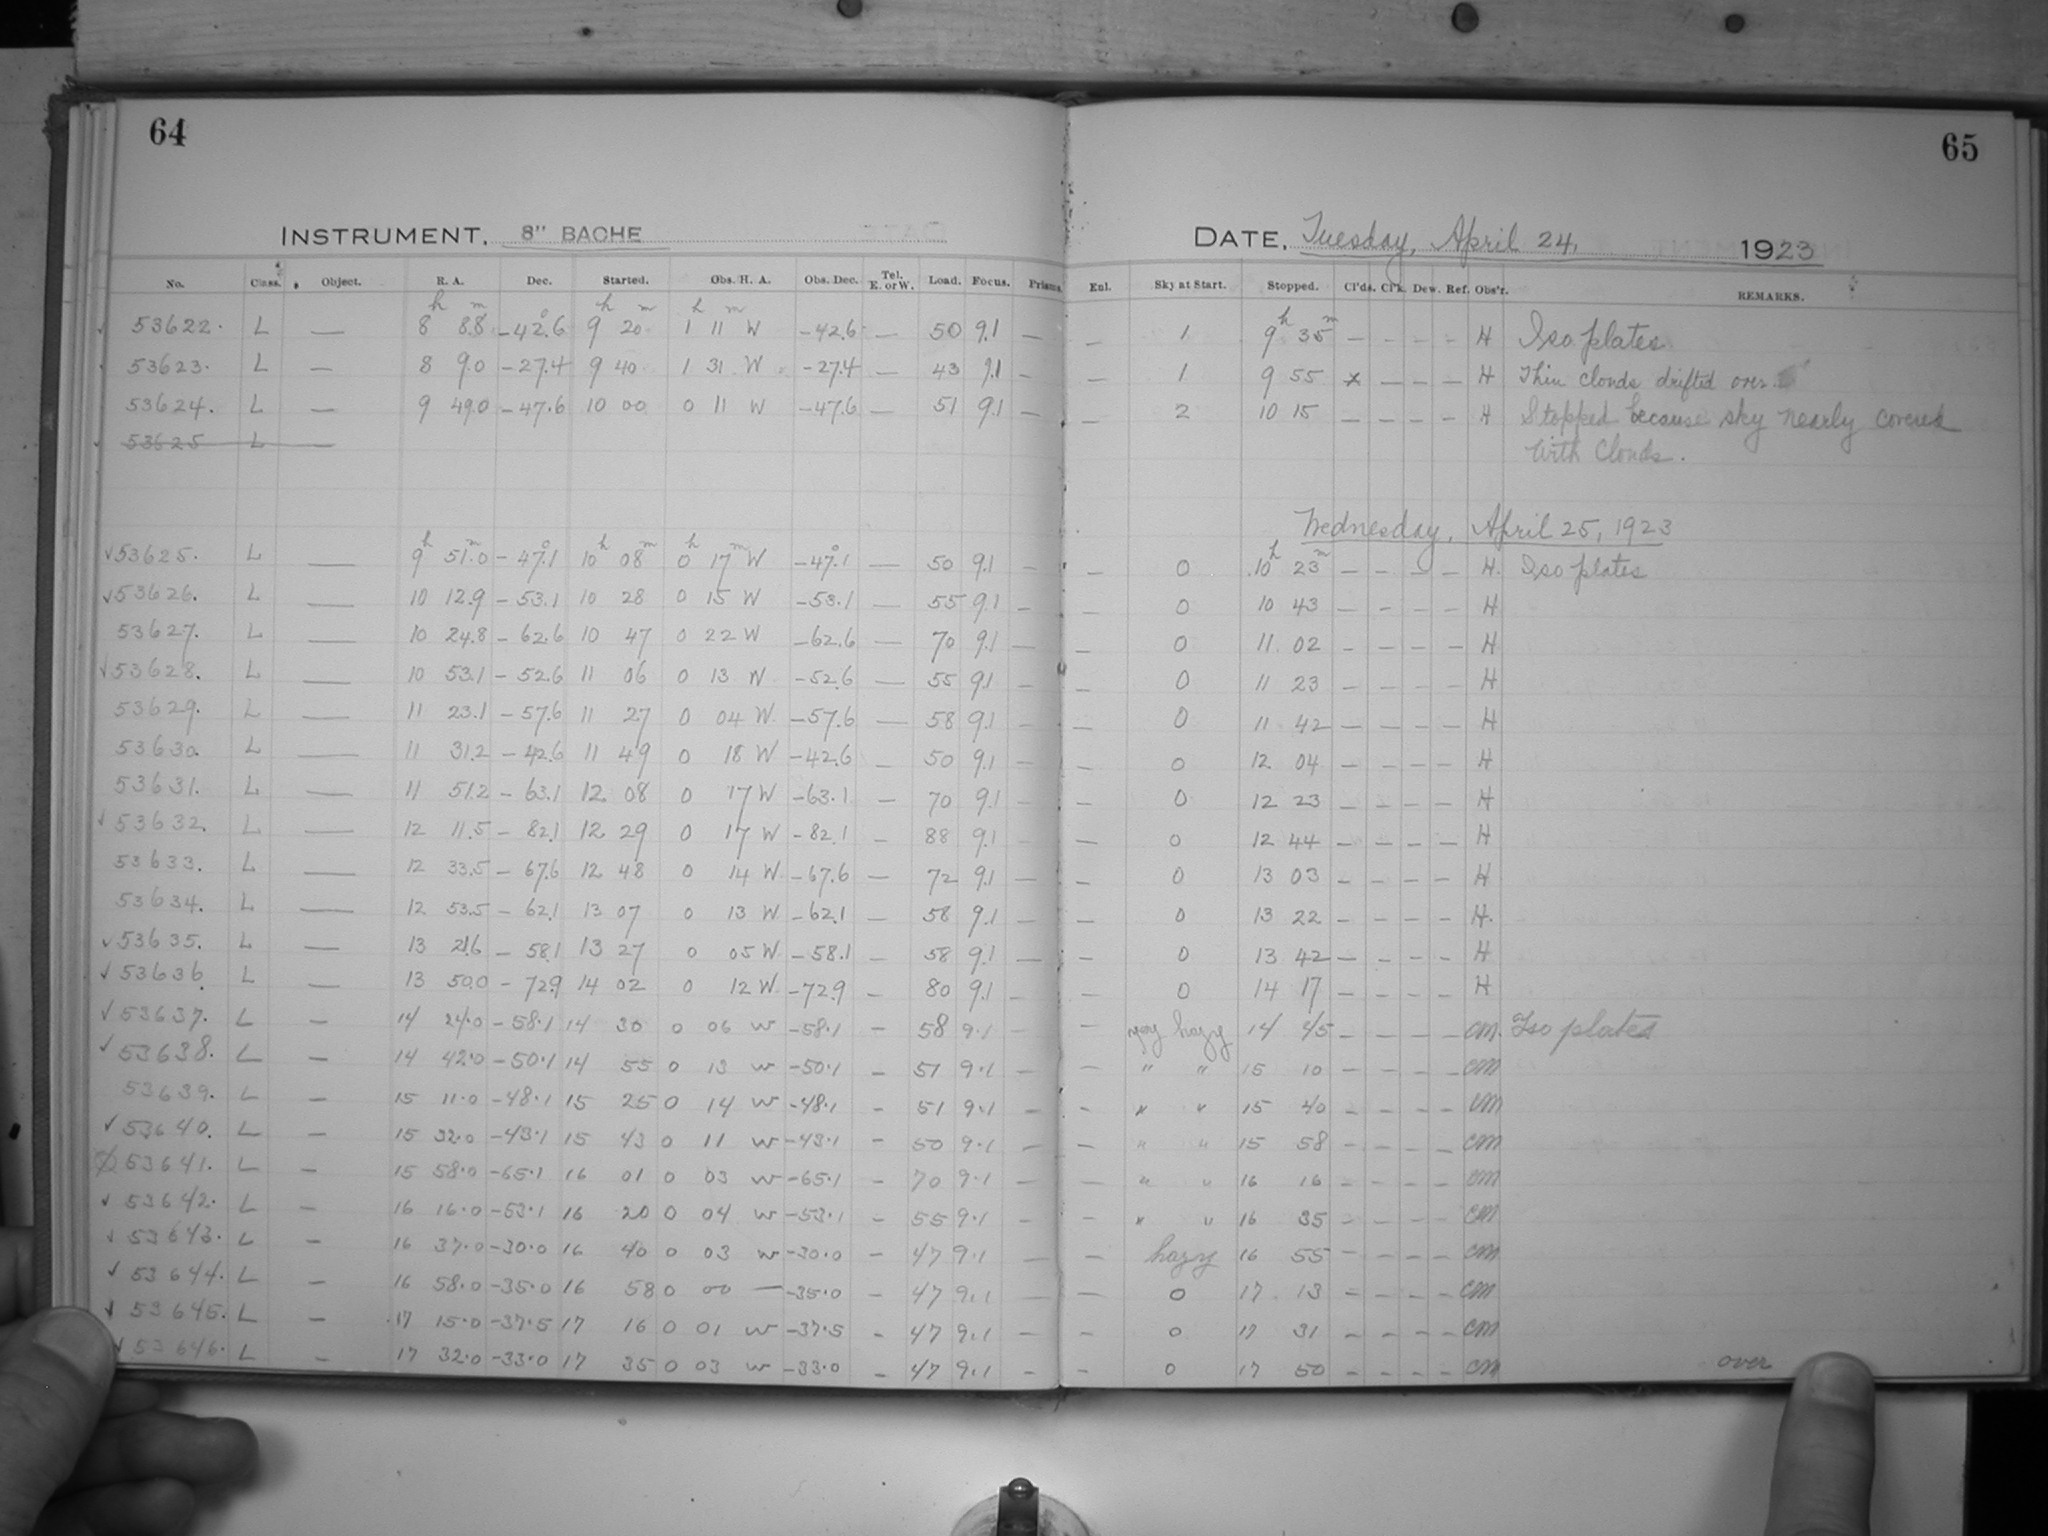 64
65
INSTRUMENT, 8" BACHE
DATE, Tuesday, April 24, 1923
No. Class. Object. R. A. Dec. Started. Obs. H. A. Obs. Dec. Tel. E. or W. Load. Focus. Prisms. Enl. Sky at Start. Stopped. Cl'ds. Cl'k. Dew. Ref. Obs'r. REMARKS.
53622. L — 8h 8.8m -42°.6 9h 20m 1h 11m W -42.6 — 50 9.1 — — 1 9h 35m — — — — H Iso plates
53623. L — 8 9.0 -27.4 9 40 1 31 W -27.4 — 43 9.1 — — 1 9 55 x — — — H Thin clouds drifted over.
53624. L — 9 49.0 -47.6 10 00 0 11 W -47.6 — 51 9.1 — — 2 10 15 — — — — H Stopped because sky nearly covered
53625 L —
with clouds.
Wednesday, April 25, 1923
✓53625. L — 9h 51.0m -47°.1 10h 08m 0h 17m W -47°.1 — 50 9.1 — — 0 10h 23m — — — — H. Iso plates
✓53626. L — 10 12.9 -53.1 10 28 0 15 W -53.1 — 55 9.1 — — 0 10 43 — — — — H
53627. L — 10 24.8 -62.6 10 47 0 22 W -62.6 — 70 9.1 — — 0 11 02 — — — — H
✓53628. L — 10 53.1 -52.6 11 06 0 13 W -52.6 — 55 9.1 — — 0 11 23 — — — — H
53629. L — 11 23.1 -57.6 11 27 0 04 W -57.6 — 58 9.1 — — 0 11 42 — — — — H
53630. L — 11 31.2 -42.6 11 49 0 18 W -42.6 — 50 9.1 — — 0 12 04 — — — — H
53631. L — 11 51.2 -63.1 12 08 0 17 W -63.1 — 70 9.1 — — 0 12 23 — — — — H
✓53632. L — 12 11.5 -82.1 12 29 0 17 W -82.1 — 88 9.1 — — 0 12 44 — — — — H
53633. L — 12 33.5 -67.6 12 48 0 14 W -67.6 — 72 9.1 — — 0 13 03 — — — — H
53634. L — 12 53.5 -62.1 13 07 0 13 W -62.1 — 58 9.1 — — 0 13 22 — — — — H.
✓53635. L — 13 21.6 -58.1 13 27 0 05 W -58.1 — 58 9.1 — — 0 13 42 — — — — H
✓53636. L — 13 50.0 -72.9 14 02 0 12 W -72.9 — 80 9.1 — — 0 14 17 — — — — H
✓53637. L — 14 24.0 -58.1 14 30 0 06 w -58.1 — 58 9.1 — — very hazy 14 45 — — — — CM. Iso plates
✓53638. L — 14 42.0 -50.1 14 55 0 13 w -50.1 — 51 9.1 — — " " 15 10 — — — — CM
53639. L — 15 11.0 -48.1 15 25 0 14 w -48.1 — 51 9.1 — — " " 15 40 — — — — CM
✓53640. L — 15 32.0 -43.1 15 43 0 11 w -43.1 — 50 9.1 — — " " 15 58 — — — — CM
53641. L — 15 58.0 -65.1 16 01 0 03 w -65.1 — 70 9.1 — — " " 16 16 — — — — CM
✓53642. L — 16 16.0 -53.1 16 20 0 04 w -53.1 — 55 9.1 — — " " 16 35 — — — — CM
✓53643. L — 16 37.0 -30.0 16 40 0 03 w -30.0 — 47 9.1 — — hazy 16 55 — — — — CM
✓53644. L — 16 58.0 -35.0 16 58 0 00 — -35.0 — 47 9.1 — — 0 17 13 — — — — CM
✓53645. L — 17 15.0 -37.5 17 16 0 01 w -37.5 — 47 9.1 — — 0 17 31 — — — — CM
✓53646. L — 17 32.0 -33.0 17 35 0 03 w -33.0 — 47 9.1 — — 0 17 50 — — — — CM
over